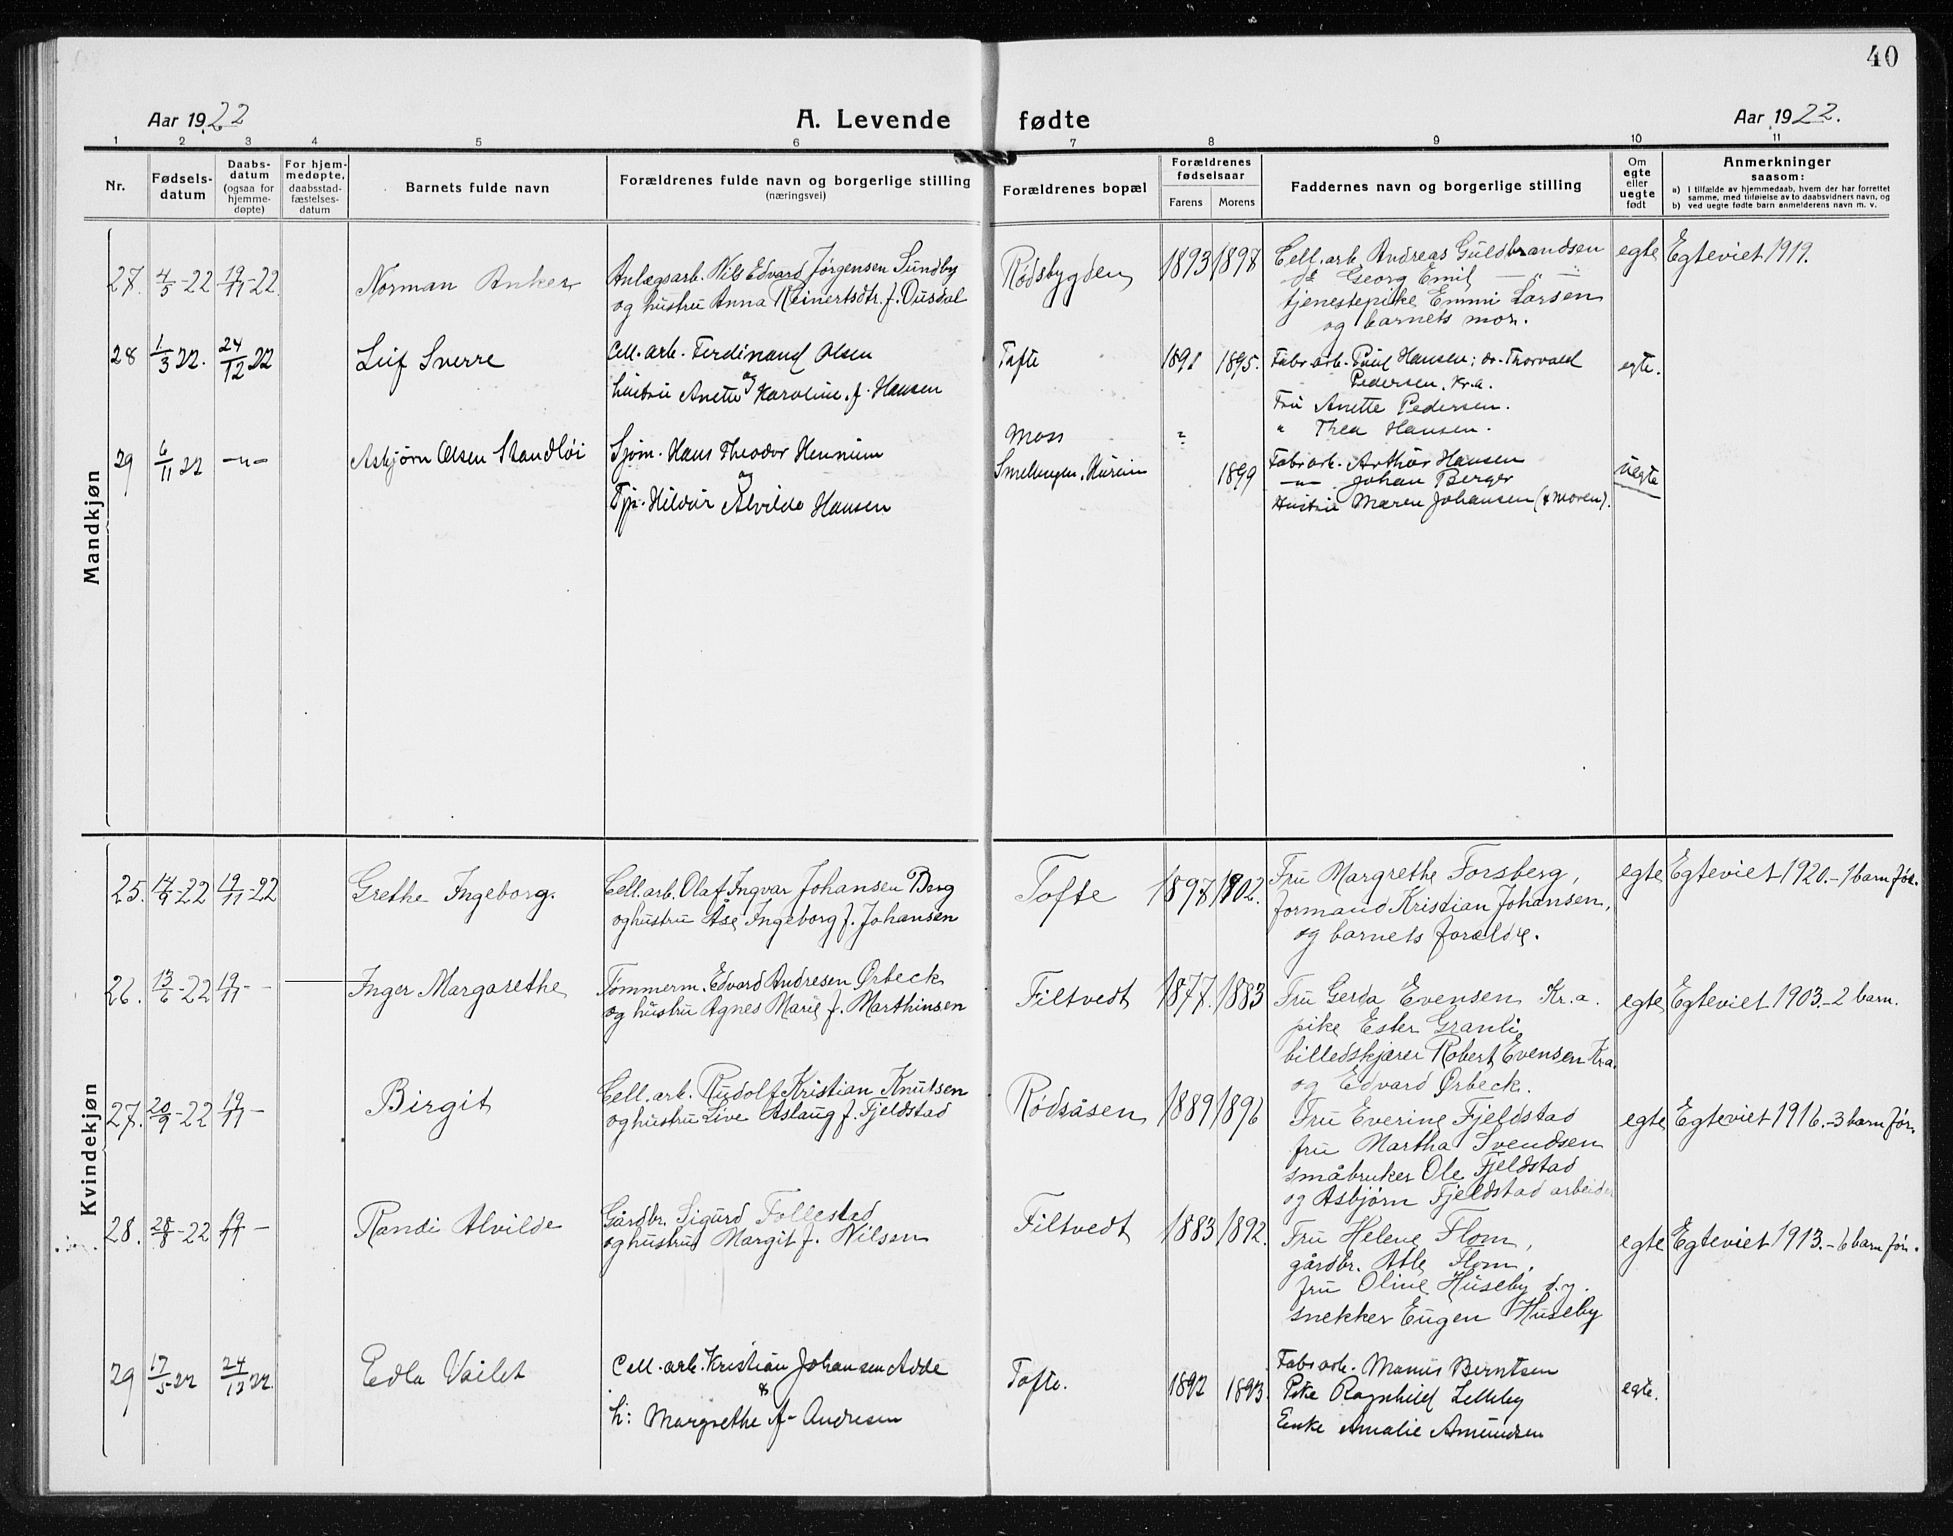 40
Aar 1922 A. Levende fødte Aar 1922.
1 2 3 4 5 6 7 8 9 10 11
Nr.
Fødsels-
datum
Daabs-
datum
(ogsaa for
hjemme-
døpte)
For hjem-
medøpte,
daabsstad-
fæstelses-
datum
Barnets fulde navn
Forældrenes fulde navn og borgerlige stilling
(næringsvei)
Forældrenes bopæl
Forældrenes
fødselsaar
Farens Morens
Faddernes navn og borgerlige stilling
Om
egte
eller
uegte
født
Anmerkninger
saasom:
a) I tilfælde av hjemmedaab, hvem der har forrettet
samme, med tilføielse av to daabsvidners navn, og
b) ved uegte fødte barn anmelderens navn m. v.
Mandkjøn
27. 4/5-22 19/11-22 Norman Anker
Anlægsarb. Nils Edvard Jørgensen Sundby
og hustru Anna Reinertsdtr. f. Dusdal
Rødsbygden 1893 1898
Cell. arb. Andreas Guldbrandsen
do Georg Emil — " —
tjenestepike Emmi Larsen
og barnets mor.
egte Egteviet 1919.
28 1/3 22. 24/12 22 Leif Sverre
Cell. arb. Ferdinand Olsen
og
hustru Anette Karoline f. Hansen
Tofte 1891 1895.
Fabr. arb. Paul Hansen; do. Thorvald
Pedersen, Kr.a.
Fru Anette Pedersen.
" Thea Hansen.
egte.
29 6/11 22 -"- Asbjørn Olsen Standløi
Sjøm. Hans Theodor Hennum
og
Tjp. Hildur Alvilde Hansen
Moss ?
Hurum 1899
Fabr. arb. Arthur Hansen
-"- Johan Berger
Hustru Maren Johansen (& moren).
uegte
Kvindekjøn
25. 14/9-22 19/11-22 Grethe Ingeborg.
Cell. arb. Olaf Ingvar Johansen Berg
og hustru Åse Ingeborg f. Johansen
Tofte 1897 1902.
Fru Margrethe Forsberg,
formand Kristian Johansen,
og barnets forældre.
egte Egteviet 1920. - 1 barn før.
26. 13/6-22 19/11 - - Inger Margarethe
Tømmerm. Edvard Andresen Ørbeck
og hustru Agnes Marie f. Marthinsen
Filtvedt 1877. 1883
Fru Gerda Evensen Kr.a.
pike Ester Granli
billedskjærer Robert Evensen Kra.
og Edvard Ørbeck.
egte Egteviet 1903. - 2 barn.
27. 20/9-22 19/11 - Birgit
Cell. arb. Rudolf Kristian Knutsen
og hustru Live Aslaug f. Fjeldstad
Rødsåsen 1889 1896
Fru Everine Fjeldstad
fru Martha Svendsen
småbruker Ole Fjeldstad
og Asbjørn Fjeldstad arbeider
egte Egteviet 1916. - 3 barn før.
28. 28/8-22 19/11 - Randi Alvilde
Gårdbr. Sigurd Follestad
og hustru Margit f. Nilsen
Filtvedt 1883 1892.
Fru Helene Flom,
gårdbr. Atle Flom,
fru Oline Huseby d.y.
snekker Eugen Huseby
egte Egteviet 1913. - 6 barn før.
29 17/5 22 24/12 22. Edla Vailet
Cell. arb. Kristian Johansen Adde
&
h: Margrethe f. Andresen
Tofte. 1892 1893.
Fabr. arb. Manus Berntsen
Pike Ragnhild Lilleby
Enke Amalie Amundsen
egte.